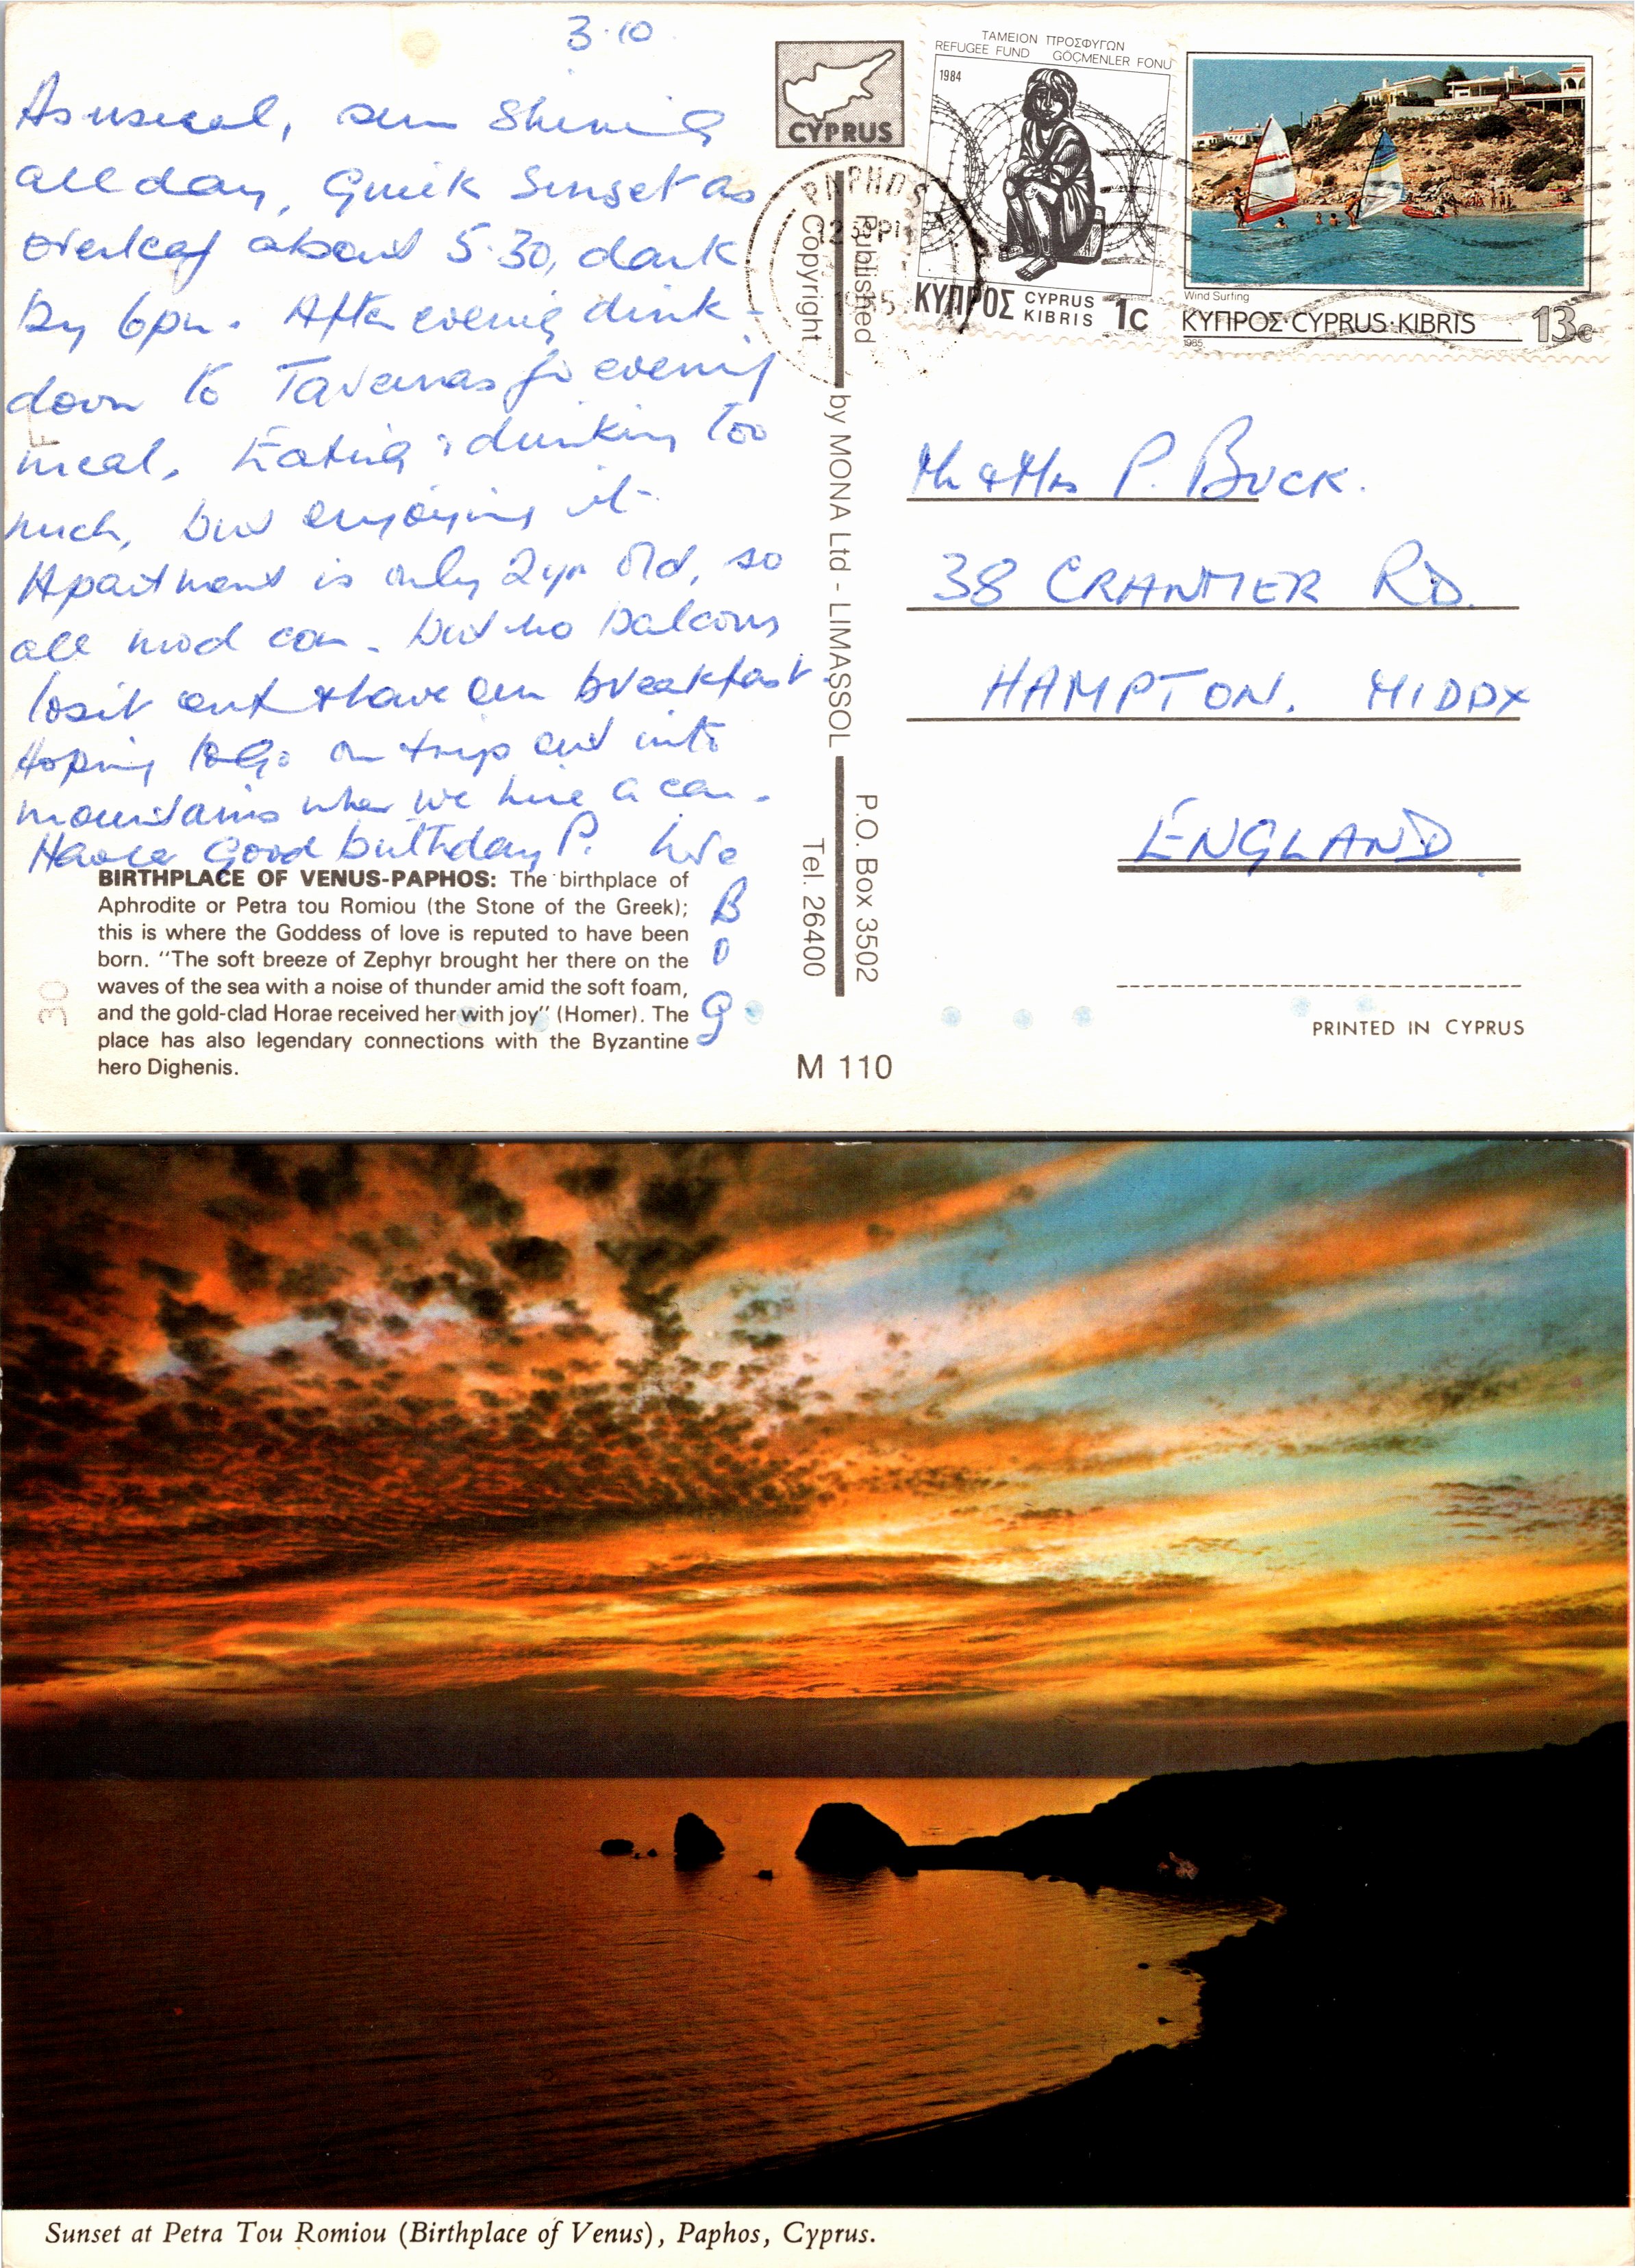 3.10
As usual, sun shining
all day, Quick Sunset as
overleaf about 5.30, dark
by 6pm. After evening drink -
down to Tavernas for evening
meal. Eating & drinking too
much, but enjoying it
Apartment is only 2 yr old, so
all mod con - but no balcony
to sit out & have our breakfast.
Hoping to go on trip out into
mountains when we hire a car.
Have a Good birthday P.
B
G
BIRTHPLACE OF VENUS-PAPHOS: The birthplace of
Aphrodite or Petra tou Romiou (the Stone of the Greek);
this is where the Goddess of love is reputed to have been
born. "The soft breeze of Zephyr brought her there on the
waves of the sea with a noise of thunder amid the soft foam,
and the gold-clad Horae received her with joy" (Homer). The
place has also legendary connections with the Byzantine
hero Dighenis.
30
CYPRUS
Copyright
Published by MONA Ltd - LIMASSOL
P.O. Box 3502
Tel. 26400
M 110
PAPHOS
ΤΑΜΕΙΟΝ ΠΡΟΣΦΥΓΩΝ
REFUGEE FUND GÖÇMENLER FONU
1984
ΚΥΠΡΟΣ CYPRUS KIBRIS 1c
Wind Surfing
ΚΥΠΡΟΣ·CYPRUS·KIBRIS 13c
1985
Mr & Mrs P. BUCK.
38 CRANMER RD.
HAMPTON. MIDDX
ENGLAND
PRINTED IN CYPRUS
Sunset at Petra Tou Romiou (Birthplace of Venus), Paphos, Cyprus.